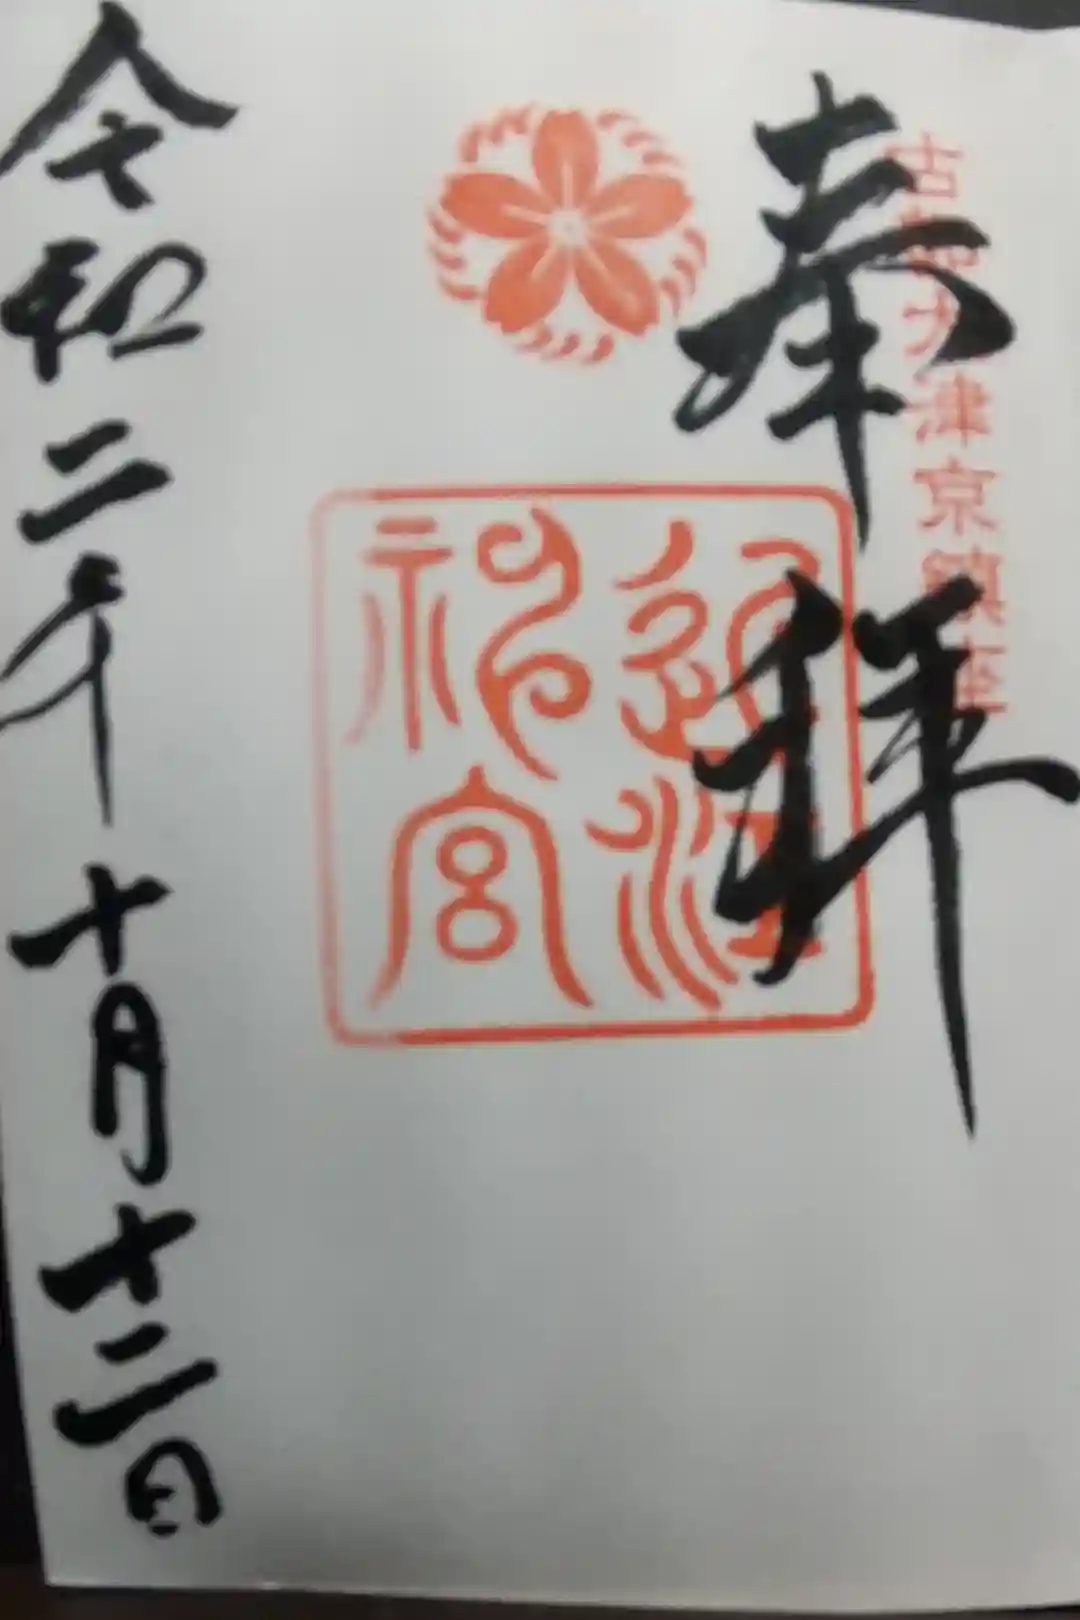 古都大津京鎮座
奉拝
近江
神宮
令和二年十月十二日